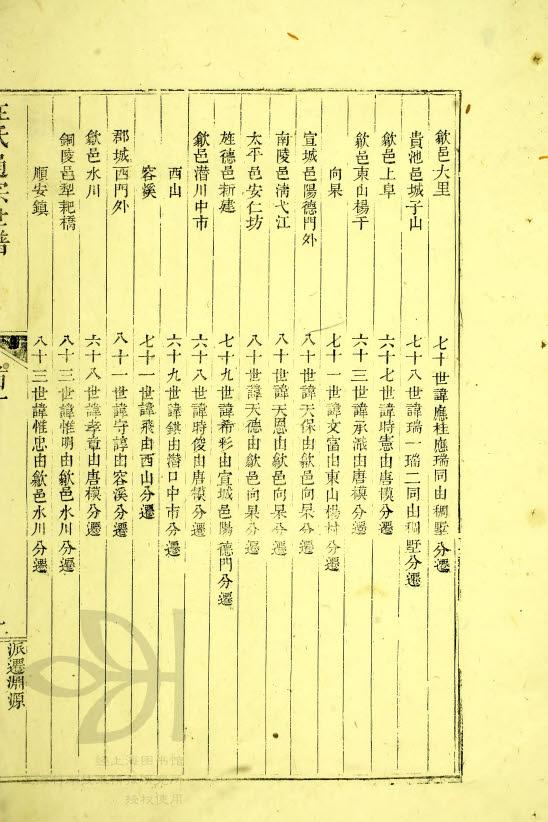 歙邑大里　七十世諱應桂應瑞同由稠墅分遷
貴池邑城子山　七十八世諱瑞一瑞二同由稠墅分遷
歙邑上阜　六十七世諱時憲由唐模分遷
歙邑東山楊干　六十三世諱承派由唐模分遷
向杲　七十一世諱文富由東山楊村分遷
宣城邑陽德門外　八十世諱天保由歙邑向杲分遷
南陵邑淸弋江　八十世諱天恩由歙邑向杲分遷
太平邑安仁坊　八十世諱天德由歙邑向杲分遷
旌德邑新建　七十九世諱希彩由宣城邑陽德門分遷
歙邑潛川中市　六十八世諱時俊由唐模分遷
西山　六十九世諱錤由潛口中市分遷
容溪　七十一世諱飛由西山分遷
郡城西門外　八十一世諱守諄由容溪分遷
歙邑水川　六十八世諱孝章由唐模分遷
銅陵邑犁耙橋　八十三世諱惟明由歙邑水川分遷
順安鎮　八十三世諱惟忠由歙邑水川分遷
汪氏通宗世譜
派遷淵源
上海图书馆
授权使用